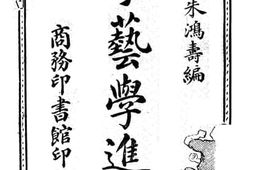 朱鴻壽編
藝學進
商務印書館印